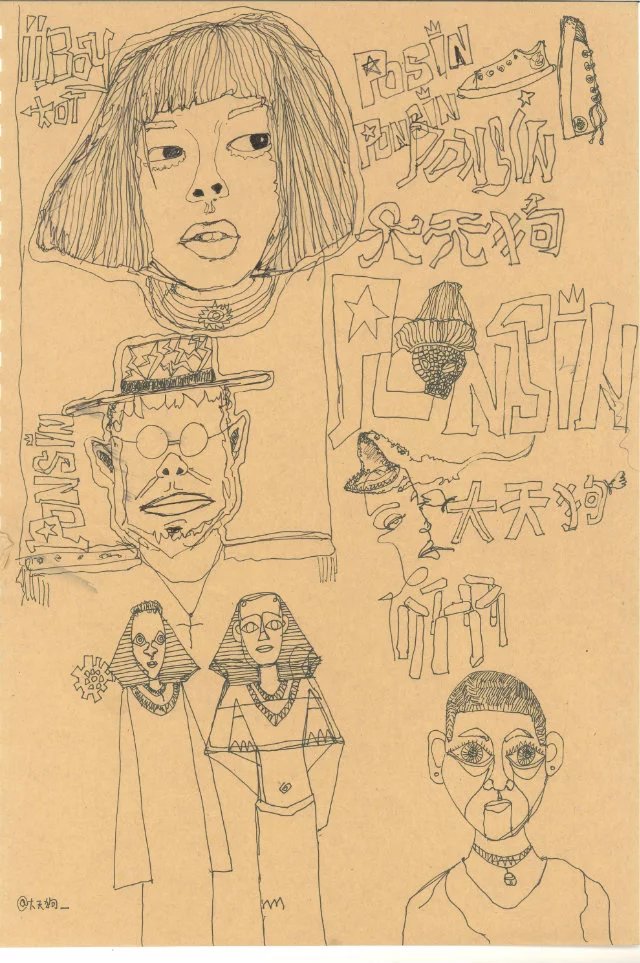 iiBoy
POSiN
PONSiN
PONSiN
大天狗
PONSiN
PONSiN
大天狗
@大天狗_